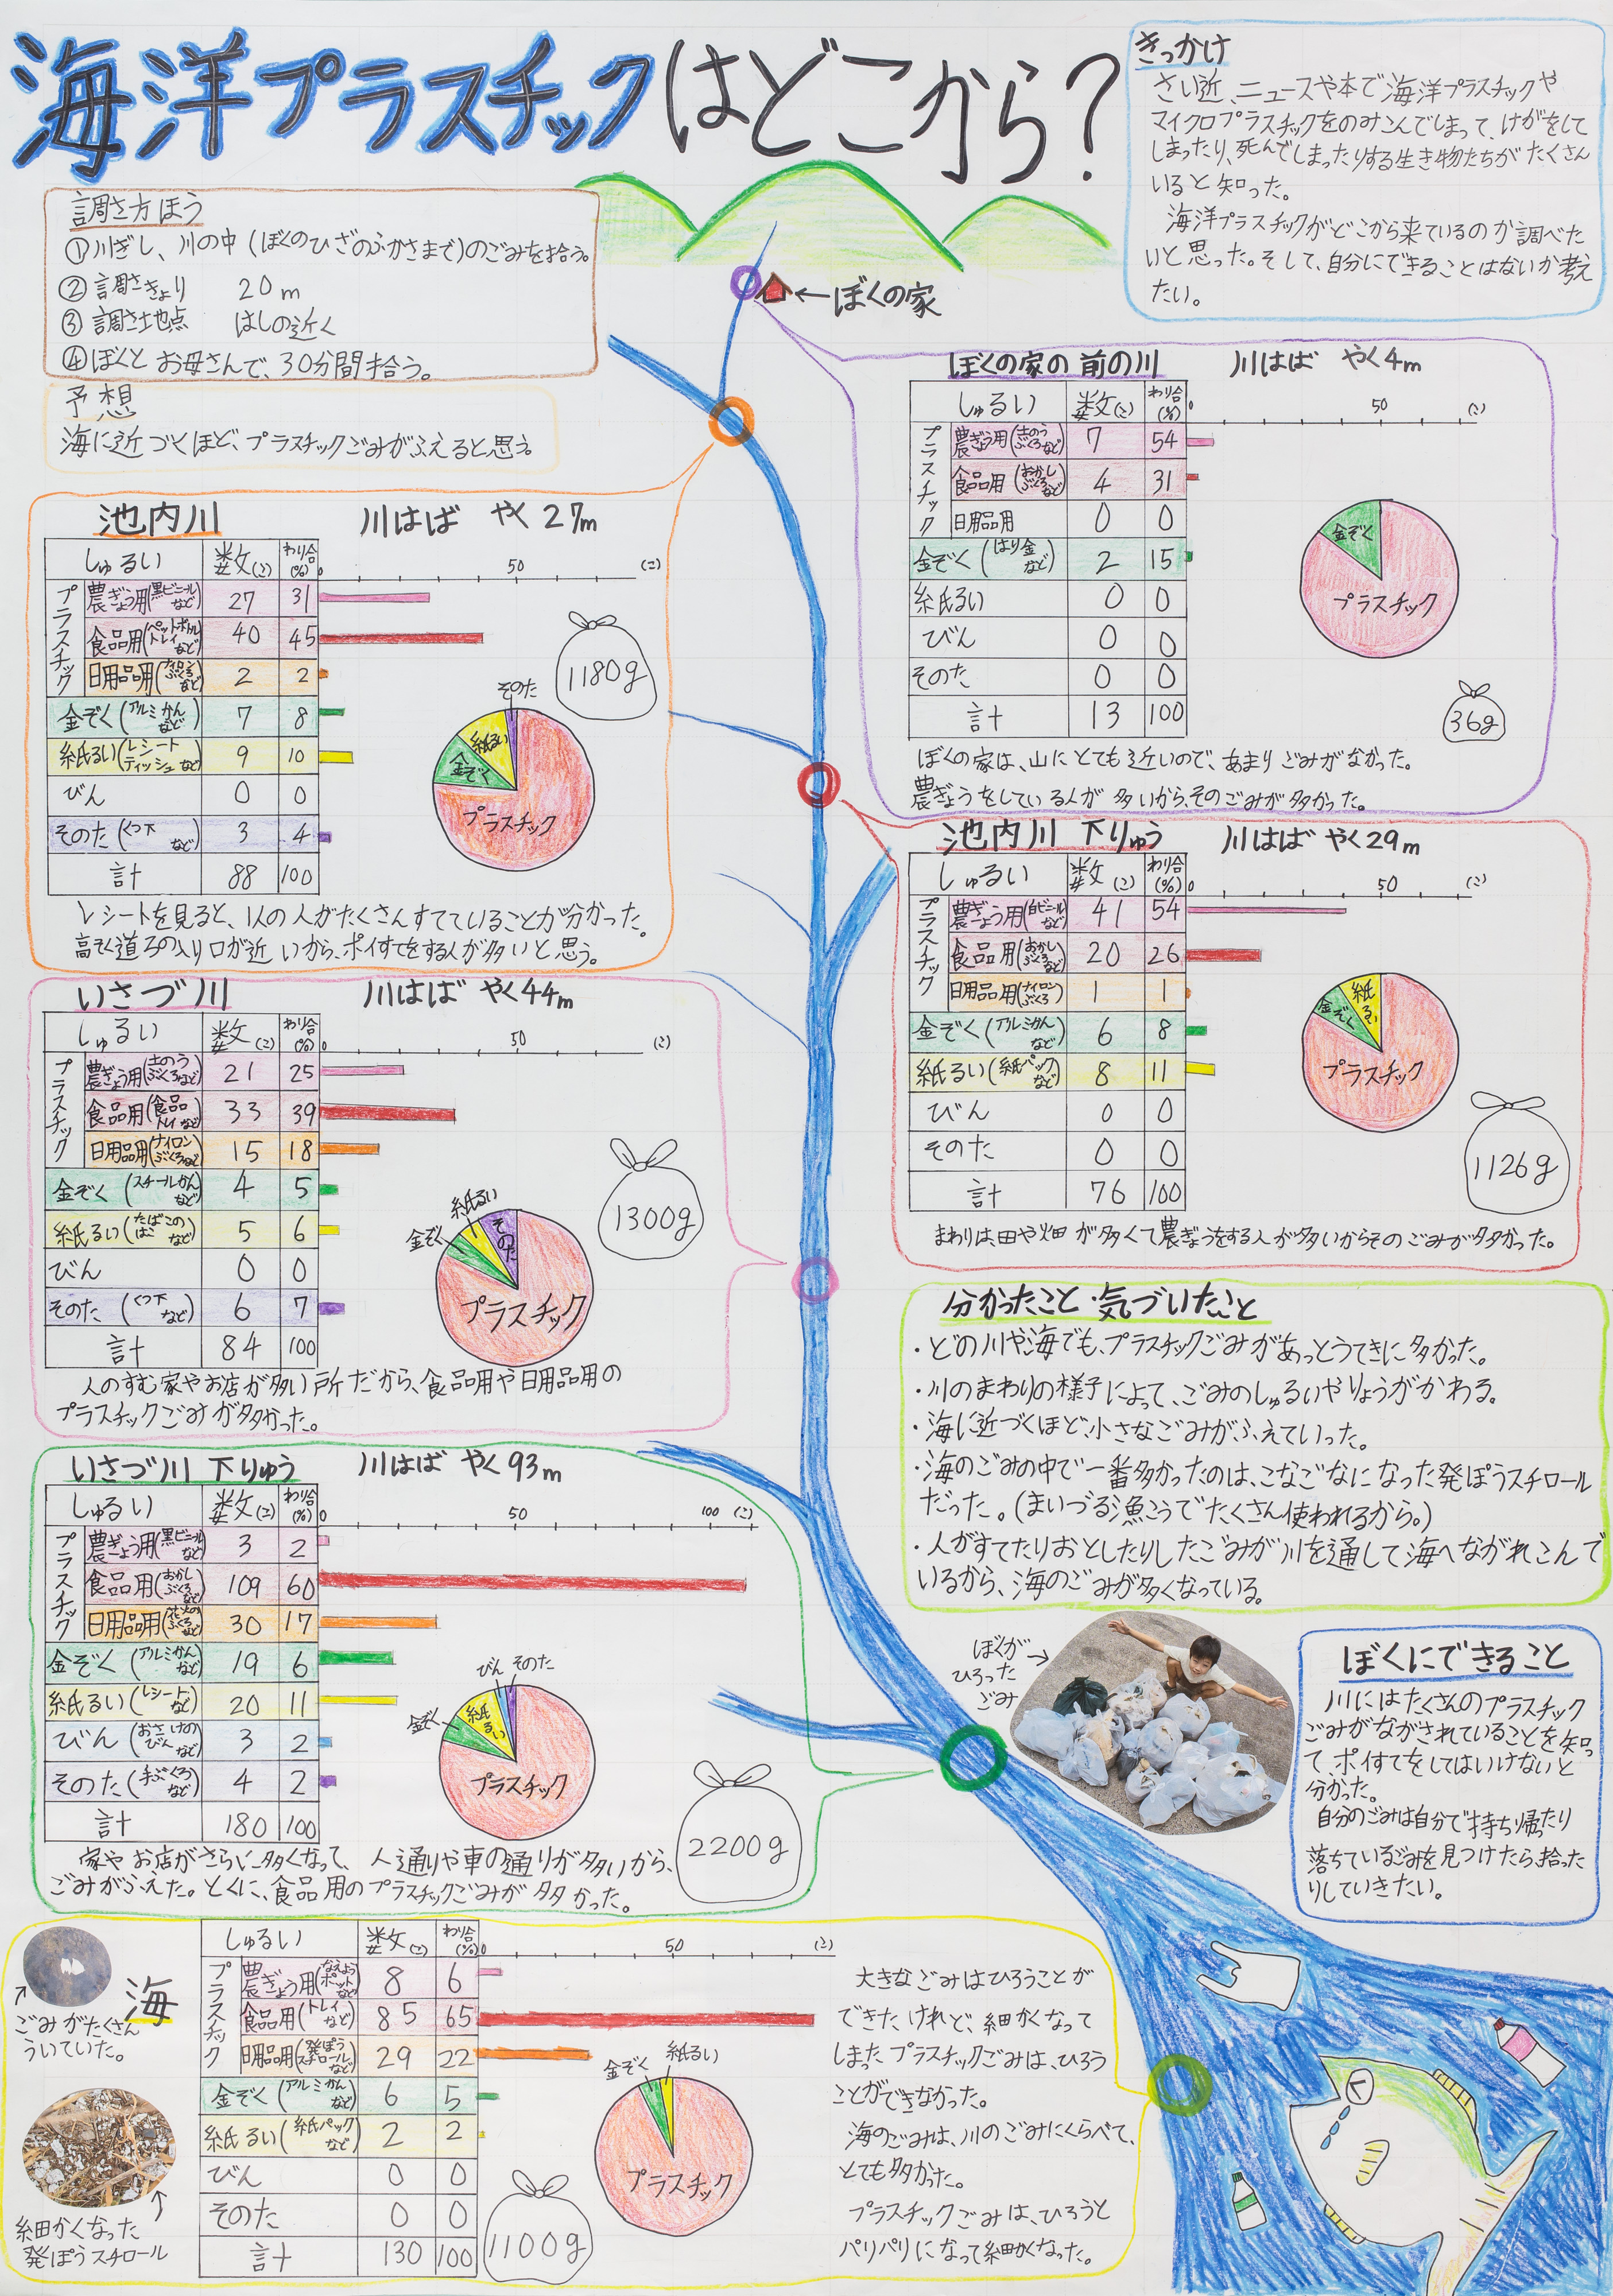 海洋プラスチックはどこから？
きっかけ
さい近、ニュースや本で海洋プラスチックや
マイクロプラスチックをのみこんでしまって、けがをして
しまったり、死んでしまったりする生き物たちがたくさん
いると知った。
海洋プラスチックがどこから来ているのか調べた
いと思った。そして、自分にできることはないか考え
たい。
調さ方ほう
①川ぎし、川の中(ぼくのひざのふかさまで)のごみを拾う。
②調さきょり 20m
③調さ地点 はしの近く
④ぼくとお母さんで、30分間拾う。
予想
海に近づくほど、プラスチックごみがふえると思う。
←ぼくの家
ぼくの家の前の川 川はば やく4m
しゅるい 数(こ) わり合(%) 0 50 (こ)
プラスチック
農ぎょう用(土のうぶくろなど) 7 54
食品用(おかしぶくろなど) 4 31
日用品用 0 0
金ぞく(はり金など) 2 15
紙るい 0 0
びん 0 0
そのた 0 0
計 13 100
金ぞく
プラスチック
36g
ぼくの家は、山にとても近いので、あまりごみがなかった。
農ぎょうをしている人が多いから、そのごみが多かった。
池内川 川はば やく27m
しゅるい 数(こ) わり合(%) 0 50 (こ)
プラスチック
農ぎょう用(黒ビニールなど) 27 31
食品用(ペットボトルトレイなど) 40 45
日用品用(ナイロンぶくろなど) 2 2
金ぞく(アルミかんなど) 7 8
紙るい(レシートティッシュなど) 9 10
びん 0 0
そのた(くつ下など) 3 4
計 88 100
1180g
そのた
紙るい
金ぞく
プラスチック
レシートを見ると、1人の人がたくさんすてていることが分かった。
高そく道ろの入り口が近いから、ポイすてをする人が多いと思う。
池内川 下りゅう 川はば やく29m
しゅるい 数(こ) わり合(%) 0 50 (こ)
プラスチック
農ぎょう用(白ビニールなど) 41 54
食品用(おかしぶくろなど) 20 26
日用品用(ナイロンぶくろ) 1 1
金ぞく(アルミかんなど) 6 8
紙るい(紙パックなど) 8 11
びん 0 0
そのた 0 0
計 76 100
金ぞく
紙るい
プラスチック
1126g
まわりは田や畑が多くて農ぎょうをする人が多いからそのごみが多かった。
いさづ川 川はば やく44m
しゅるい 数(こ) わり合(%) 0 50 (こ)
プラスチック
農ぎょう用(土のうぶくろなど) 21 25
食品用(食品トレイなど) 33 39
日用品用(ナイロンぶくろなど) 15 18
金ぞく(スチールかんなど) 4 5
紙るい(たばこのはこなど) 5 6
びん 0 0
そのた(くつ下など) 6 7
計 84 100
1300g
金ぞく
紙るい
そのた
プラスチック
人のすむ家やお店が多い所だから、食品用や日用品用の
プラスチックごみが多かった。
分かったこと・気づいたこと
・どの川や海でも、プラスチックごみがあっとうてきに多かった。
・川のまわりの様子によって、ごみのしゅるいやりょうがかわる。
・海に近づくほど、小さなごみがふえていった。
・海のごみの中で一番多かったのは、こなごなになった発ぽうスチロール
だった。(まいづる漁こうでたくさん使われるから。)
・人がすてたりおとしたりしたごみが川を通して海へながれこんで
いるから、海のごみが多くなっている。
いさづ川 下りゅう 川はば やく93m
しゅるい 数(こ) わり合(%) 0 50 100 (こ)
プラスチック
農ぎょう用(黒ビニールなど) 3 2
食品用(おかしぶくろなど) 109 60
日用品用(花火のぶくろなど) 30 17
金ぞく(アルミかんなど) 19 6
紙るい(レシートなど) 20 11
びん(おさけのびんなど) 3 2
そのた(手ぶくろなど) 4 2
計 180 100
金ぞく
紙るい
びん
そのた
プラスチック
2200g
家やお店がさらに多くなって、人通りや車の通りが多いから、
ごみがふえた。とくに、食品用のプラスチックごみが多かった。
ぼくが
ひろった
ごみ
→
ぼくにできること
川にはたくさんのプラスチック
ごみがながされていることを知っ
て、ポイすてをしてはいけないと
分かった。
自分のごみは自分で持ち帰ったり
落ちているごみを見つけたら、拾った
りしていきたい。
海
ごみがたくさん
ういていた。
細かくなった
発ぽうスチロール
しゅるい 数(こ) わり合(%) 0 50 (こ)
プラスチック
農ぎょう用(なえようポットなど) 8 6
食品用(トレイなど) 85 65
日用品用(発ぽうスチロールなど) 29 22
金ぞく(アルミかんなど) 6 5
紙るい(紙パックなど) 2 2
びん 0 0
そのた 0 0
計 130 100
1100g
金ぞく
紙るい
プラスチック
大きなごみはひろうことが
できたけれど、細かくなって
しまったプラスチックごみは、ひろう
ことができなかった。
海のごみは、川のごみにくらべて、
とても多かった。
プラスチックごみは、ひろうと
パリパリになって細かくなった。